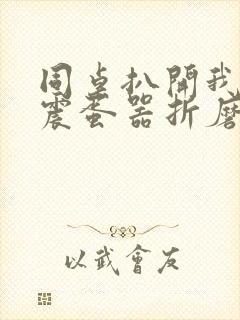 同桌扒開我
震蛋器折磨
以武會友